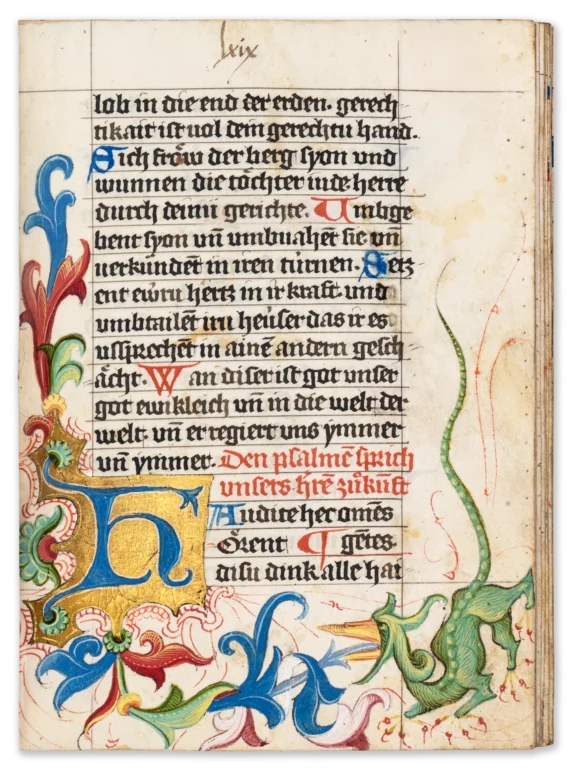 lxix
lob in die end der erden. gerech
tikait ist uol dein gerechtu hand.
Sich fröw der berg syon vnd
wunnen die töchter iude herre
durch deinu gerichte. Umbge
bent syon vn̄ vmbuahēt sie vn̄
uerkündēt in iren türnen. Setz
ent ewru hertz in ir kraft und
vmbtailēt iru heüser das ir es
ussprechēt in ainē andern gesch
lächt. Wan diser ist got unser
got ewikleich vn̄ in die welt der
welt. vn̄ er regiert uns ymmer
vn̄ ymmer. Den psalmē sprich
unsers hrē zůkunft
Audite hec omēs
Hörent ¶ gētes
disu dink alle hai